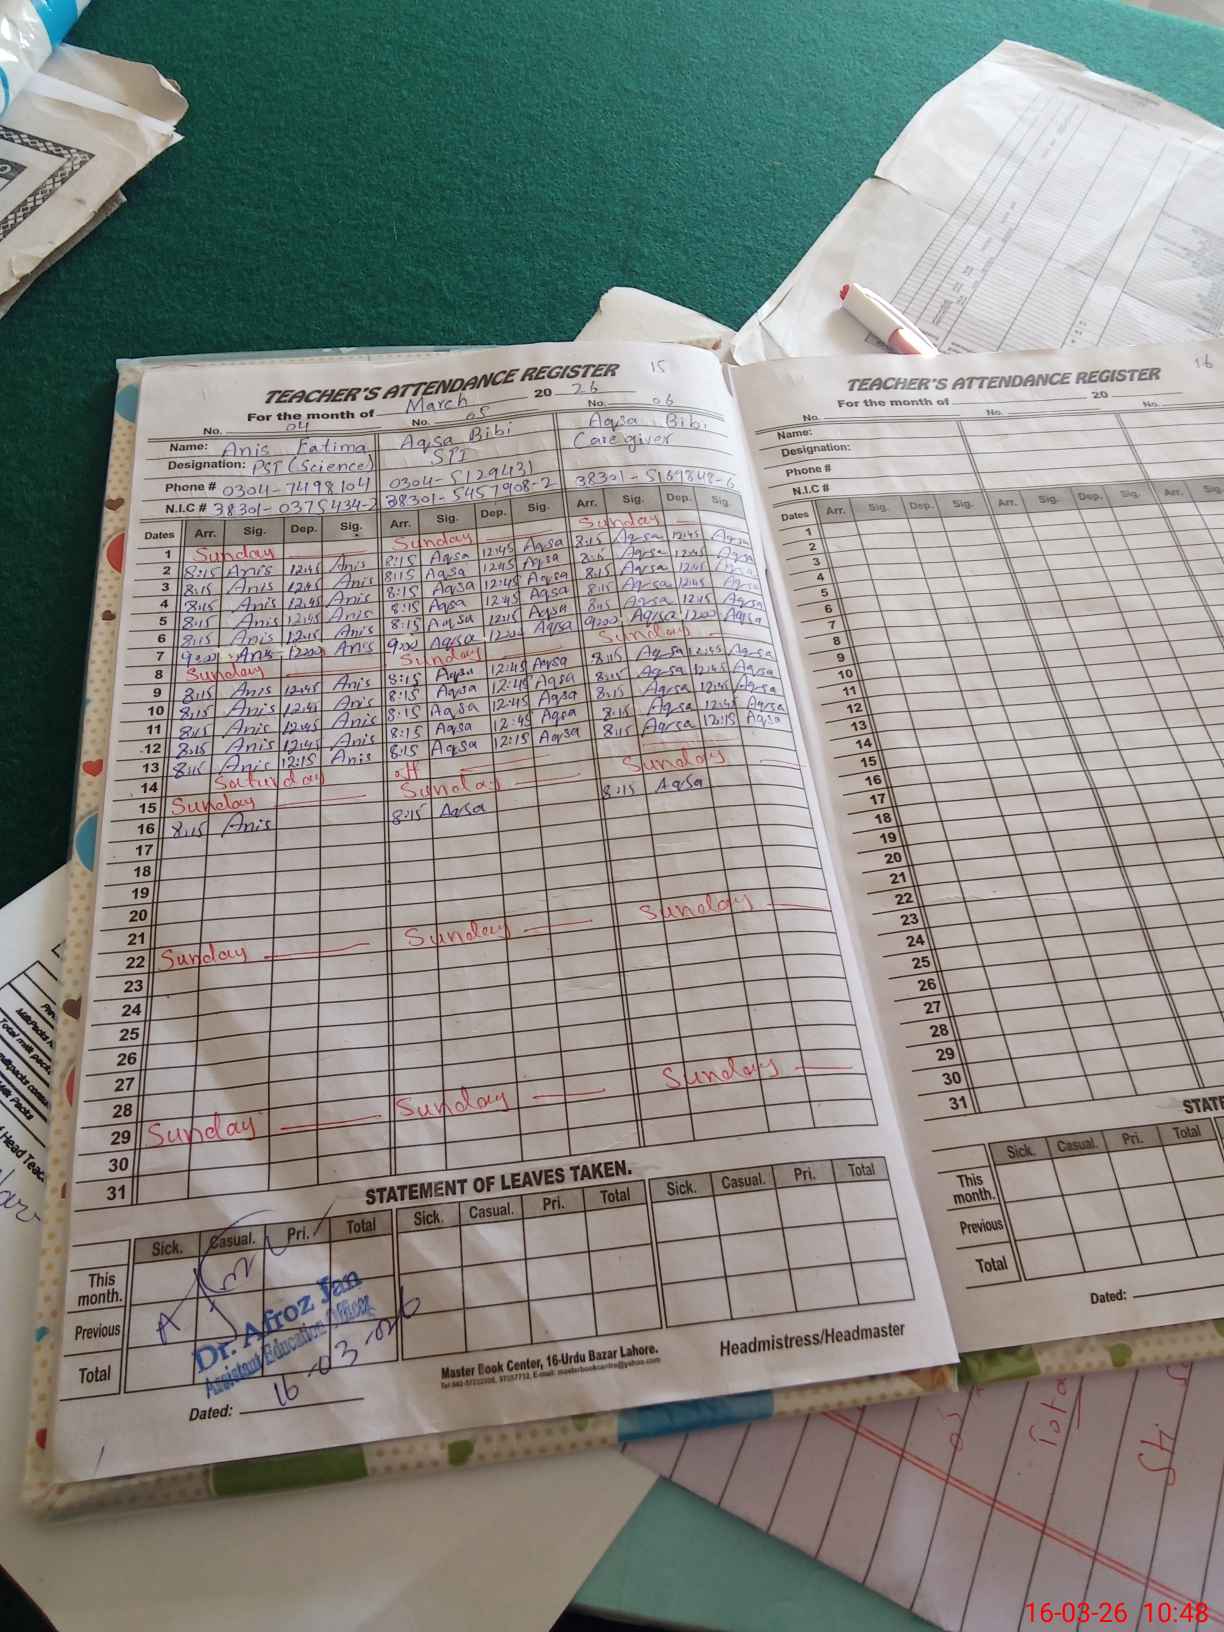 15
TEACHER'S ATTENDANCE REGISTER
For the month of March 2026
No. 04 No. 05 No. 06
Name: Anis Fatima Aqsa Bibi Aqsa Bibi
Designation: PST (Science) STI Caregiver
Phone # 0304-7498104 0304-5129431
N.I.C # 38301-0375434-2 38301-5457908-2 38301-5169848-6
Dates Arr. Sig. Dep. Sig. Arr. Sig. Dep. Sig. Arr. Sig. Dep. Sig.
1 Sunday Sunday Sunday
2 8:15 Anis 12:45 Anis 8:15 Aqsa 12:45 Aqsa 8:15 Aqsa 12:45 Aqsa
3 8:15 Anis 12:45 Anis 8:15 Aqsa 12:45 Aqsa 8:15 Aqsa 12:45 Aqsa
4 8:15 Anis 12:45 Anis 8:15 Aqsa 12:45 Aqsa 8:15 Aqsa 12:45 Aqsa
5 8:15 Anis 12:45 Anis 8:15 Aqsa 12:45 Aqsa 8:15 Aqsa 12:45 Aqsa
6 8:15 Anis 12:15 Anis 8:15 Aqsa 12:15 Aqsa 8:15 Aqsa 12:15 Aqsa
7 9:00 Anis 12:00 Anis 9:00 Aqsa 12:00 Aqsa 9:00 Aqsa 12:00 Aqsa
8 Sunday Sunday Sunday
9 8:15 Anis 12:45 Anis 8:15 Aqsa 12:45 Aqsa 8:15 Aqsa 12:45 Aqsa
10 8:15 Anis 12:45 Anis 8:15 Aqsa 12:45 Aqsa 8:15 Aqsa 12:45 Aqsa
11 8:15 Anis 12:45 Anis 8:15 Aqsa 12:45 Aqsa 8:15 Aqsa 12:45 Aqsa
12 8:15 Anis 12:45 Anis 8:15 Aqsa 12:45 Aqsa 8:15 Aqsa 12:45 Aqsa
13 8:15 Anis 12:15 Anis 8:15 Aqsa 12:15 Aqsa 8:15 Aqsa 12:15 Aqsa
14 Saturday off
15 Sunday Sunday Sunday
16 8:15 Anis 8:15 Aqsa 8:15 Aqsa
17
18
19
20
21
22 Sunday Sunday Sunday
23
24
25
26
27
28
29 Sunday Sunday Sunday
30
31
STATEMENT OF LEAVES TAKEN.
Sick. Casual. Pri. Total Sick. Casual. Pri. Total Sick. Casual. Pri. Total
This month.
Previous
Total
Dr. Afroz Jan
Assistant Education Officer
16-03-26
Dated:
Master Book Center, 16-Urdu Bazar Lahore.
Headmistress/Headmaster
16
TEACHER'S ATTENDANCE REGISTER
For the month of 20
No. No. No.
Name:
Designation:
Phone #
N.I.C #
Dates Arr. Sig. Dep. Sig. Arr. Sig. Dep. Sig. Arr. Sig.
1
2
3
4
5
6
7
8
9
10
11
12
13
14
15
16
17
18
19
20
21
22
23
24
25
26
27
28
29
30
31
STATE
Sick. Casual. Pri. Total Sick.
This month.
Previous
Total
Dated:
Total
45
16-03-26 10:48